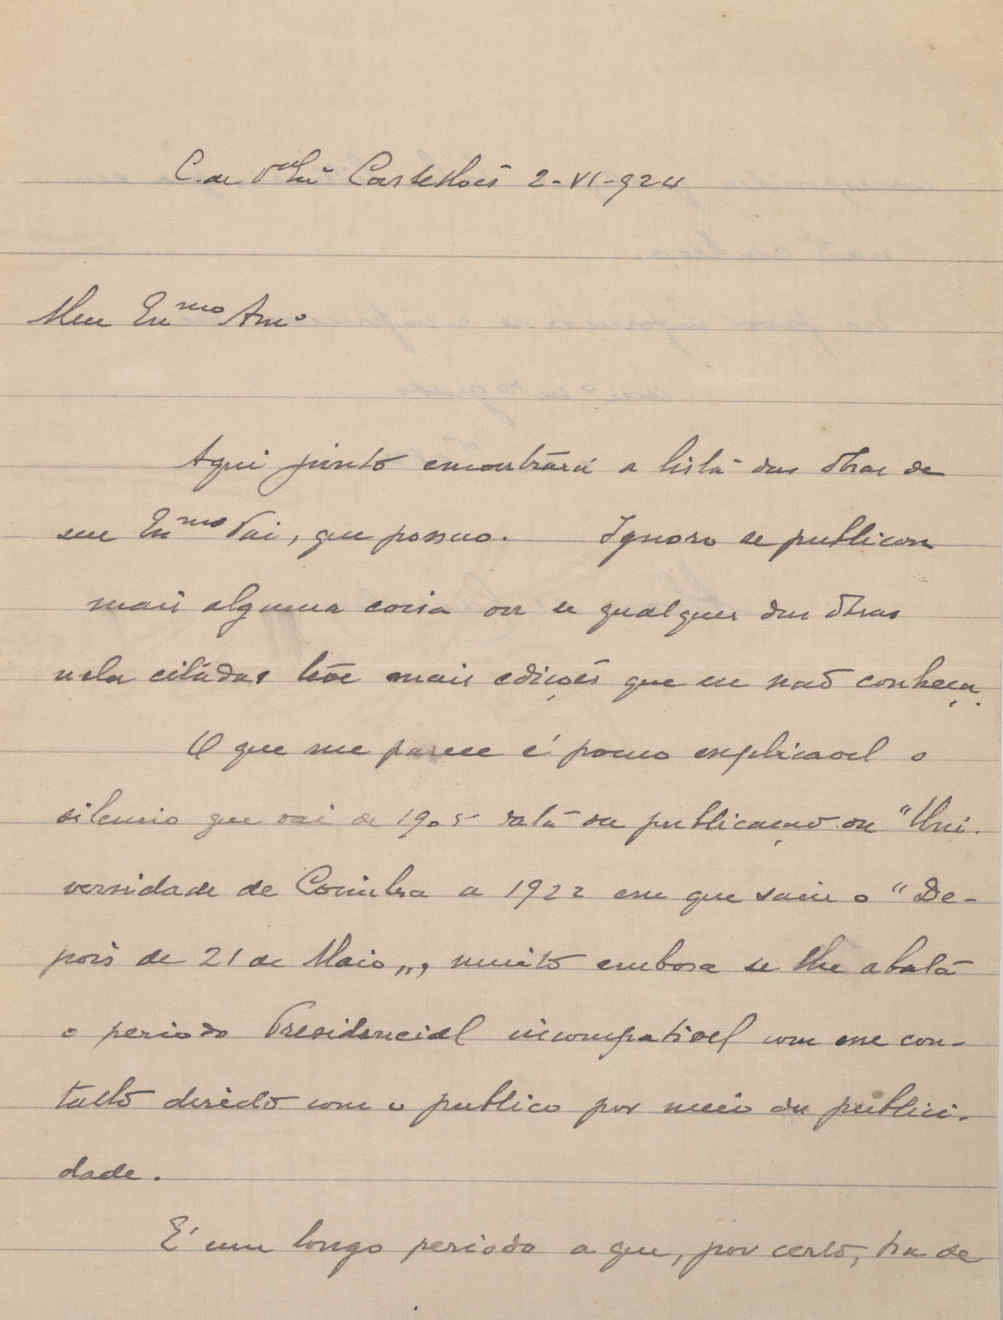 C. de Castellões 2-VI-924
Meu Exmo Amo
Aqui junto encontrará a lista das obras de
seu Exmo Pai, que possuo. Ignoro se publicou
mais alguma coisa ou se qualquer das obras
nela citadas teve mais edições que eu não conheça.
O que me parece é pouco explicavel o
silencio que vai de 1905 data da publicação da "Uni-
versidade de Coimbra a 1922 em que saiu o "De-
pois de 21 de Maio„, muito embora se lhe abata
o periodo Presidencial incompativel com esse con-
tacto directo com o publico por meio da publici-
dade.
É um longo periodo a que, por certo, ha de